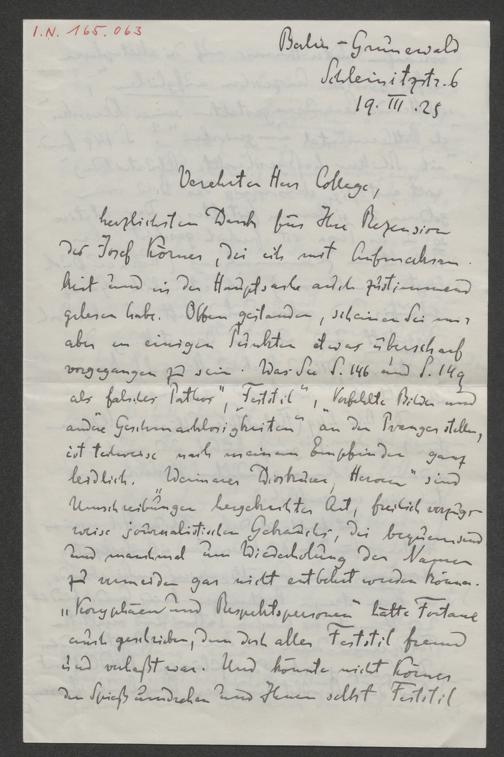 I.N. 165.063
Berlin-Grunewald
Schleinitzstr. 6
19. III. 25
Verehrter Herr College,
herzlichsten Dank für Ihre Rezension
des Josef Körner, die ich mit Aufmerksam-
keit und in der Hauptsache auch zustimmend
gelesen habe. Offen gestanden, scheinen Sie mir
aber in einigen Punkten etwas überscharf
vorgegangen zu sein. Was Sie S. 146 und S. 149
als falsches Pathos", „Feststil", „Verfehlte Bilder und
andere Geschmacklosigkeiten" an den Pranger stellen,
ist teilweise nach meinem Empfinden ganz
leidlich. Weimarer Dioskuren, Heroen" sind
Umschreibungen hergebrachter Art, freilich vorzugs-
weise journalistischen Gebrauchs, die bequem sind
und manchmal um Wiederholung der Namen
zu vermeiden gar nicht entbehrt werden können.
„Koryphäen und Respektspersonen" hätte Fontane
auch geschrieben, dem doch aller Feststil fremd
und verhaßt war. Und könnte nicht Körner
den Spieß umdrehen und Ihnen selbst Feststil